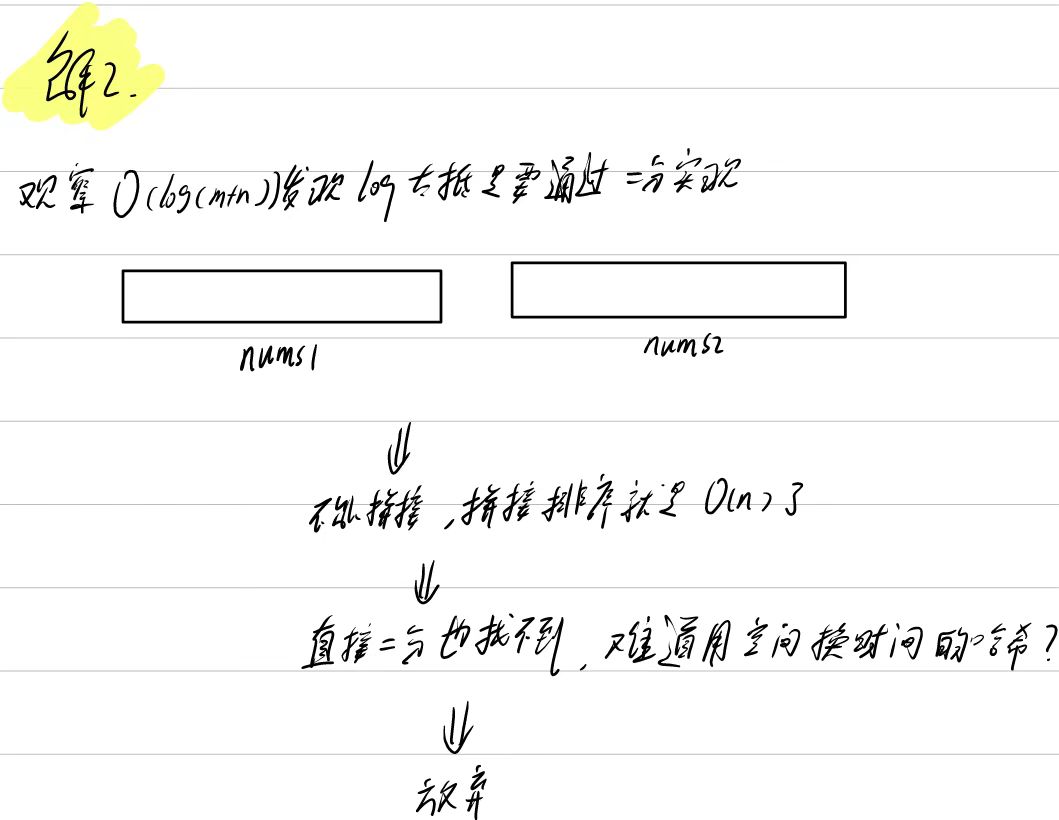 解2.
观察O(log(m+n))发现log大抵是要通过二分实现
nums1
nums2
⇓
不能拼接,拼接排序就是O(n)了
⇓
直接二分也找不到,难道用空间换时间的哈希?
⇓
放弃